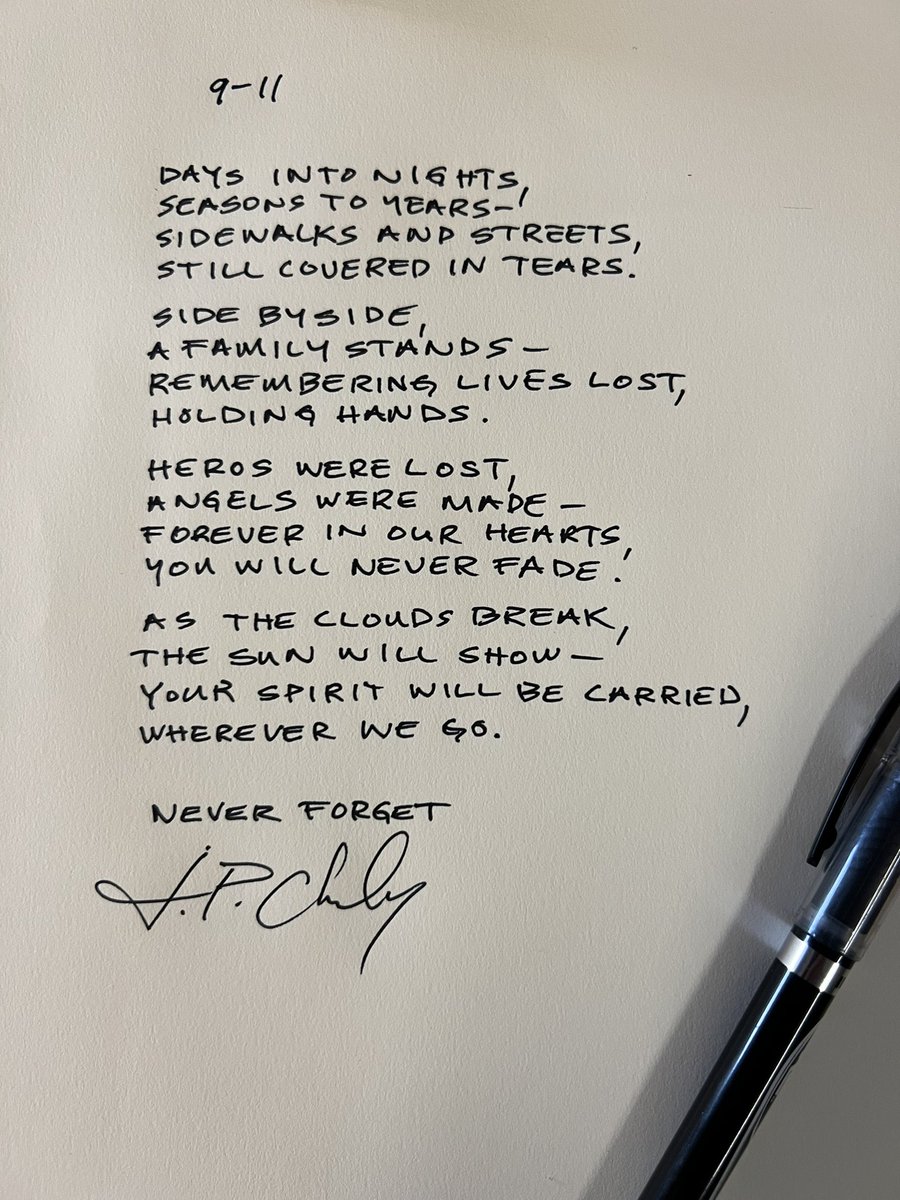 9-11
DAYS INTO NIGHTS,
SEASONS TO YEARS-
SIDEWALKS AND STREETS,
STILL COVERED IN TEARS.
SIDE BY SIDE,
A FAMILY STANDS-
REMEMBERING LIVES LOST,
HOLDING HANDS.
HEROS WERE LOST,
ANGELS WERE MADE-
FOREVER IN OUR HEARTS,
YOU WILL NEVER FADE.
AS THE CLOUDS BREAK,
THE SUN WILL SHOW-
YOUR SPIRIT WILL BE CARRIED,
WHEREVER WE GO.
NEVER FORGET
J.P.